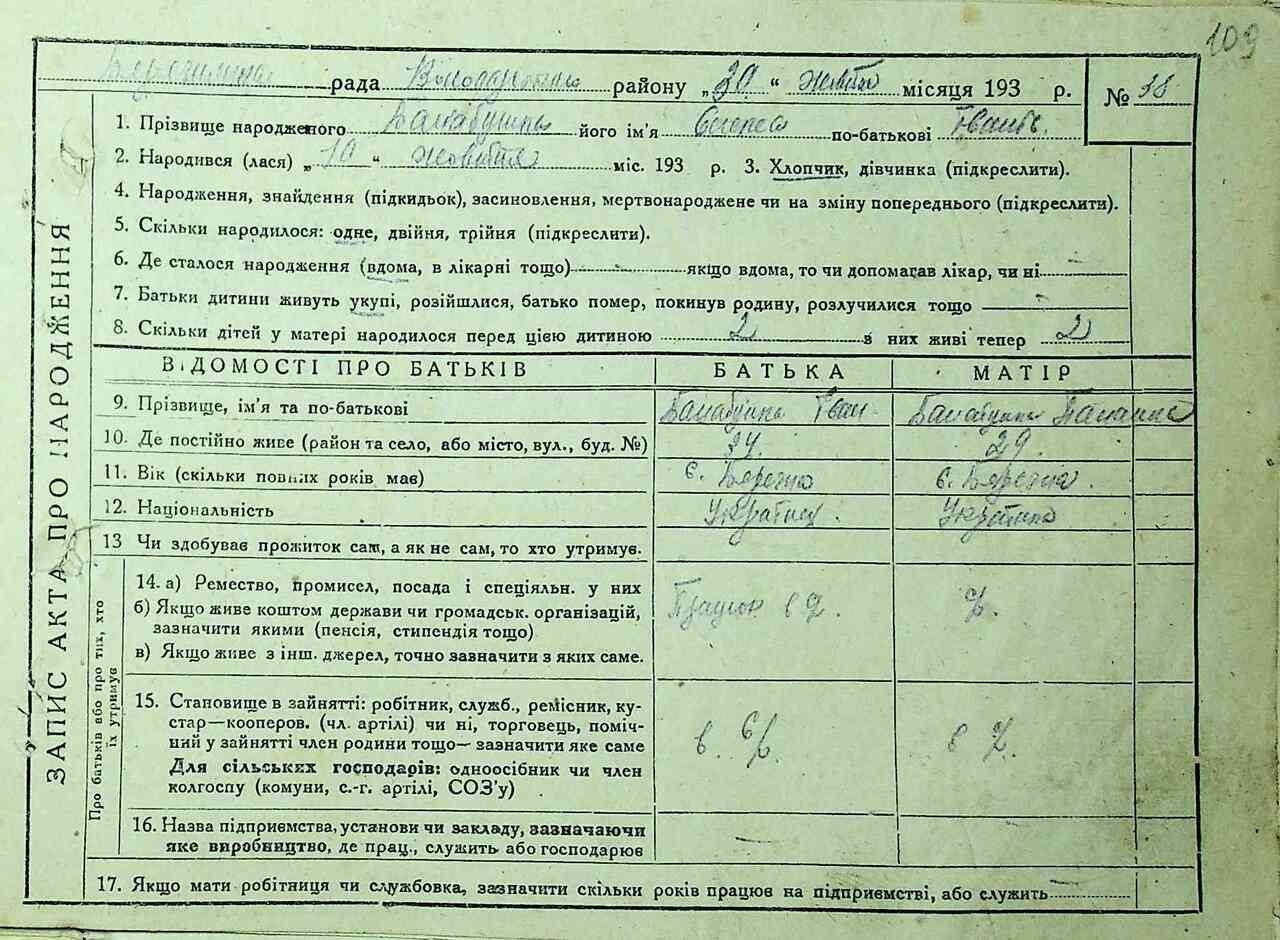 109
рада району „30“ жовтня місяця 193 р. № 38
1. Прізвище народженого Балабушка його ім'я Степан по-батькові Іванов.
2. Народився (лася) „10“ жовтня міс. 193 р. 3. Хлопчик, дівчинка (підкреслити).
4. Народження, знайдення (підкидьок), засиновлення, мертвонароджене чи на зміну попереднього (підкреслити).
5. Скільки народилося: одне, двійня, трійня (підкреслити).
6. Де сталося народження (вдома, в лікарні тощо) якщо вдома, то чи допомагав лікар, чи ні
7. Батьки дитини живуть укупі, розійшлися, батько помер, покинув родину, розлучилися тощо
8. Скільки дітей у матері народилося перед цією дитиною 2 з них живі тепер 2
ВІДОМОСТІ ПРО БАТЬКІВ БАТЬКА МАТІР
9. Прізвище, ім'я та по-батькові Балабушка Іван Балабушка
10. Де постійно живе (район та село, або місто, вул., буд. №) 34. 29.
11. Вік (скільки повних років має) с. Березна с. Березна.
12. Національність Українец. Українка
13 Чи здобував прожиток сам, а як не сам, то хто утримує.
Про батьків або про тих, хто їх утримує
14. а) Ремество, промисел, посада і спеціяльн. у них
б) Якщо живе коштом держави чи громадськ. організацій, зазначити якими (пенсія, стипендія тощо)
в) Якщо живе з інш. джерел, точно зазначити з яких саме.
15. Становище в зайнятті: робітник, служб., ремісник, ку-
стар—кооперов. (чл. артілі) чи ні, торговець, поміч-
ний у зайнятті член родини тощо— зазначити яке саме
Для сільських господарів: одноосібник чи член
колгоспу (комуни, с.-г. артілі, СОЗ'у)
16. Назва підприємства, установи чи закладу, зазначаючи
яке виробництво, де прац., служить або господарює
17. Якщо мати робітниця чи службовка, зазначити скільки років працює на підприємстві, або служить
ЗАПИС АКТА ПРО НАРОДЖЕННЯ